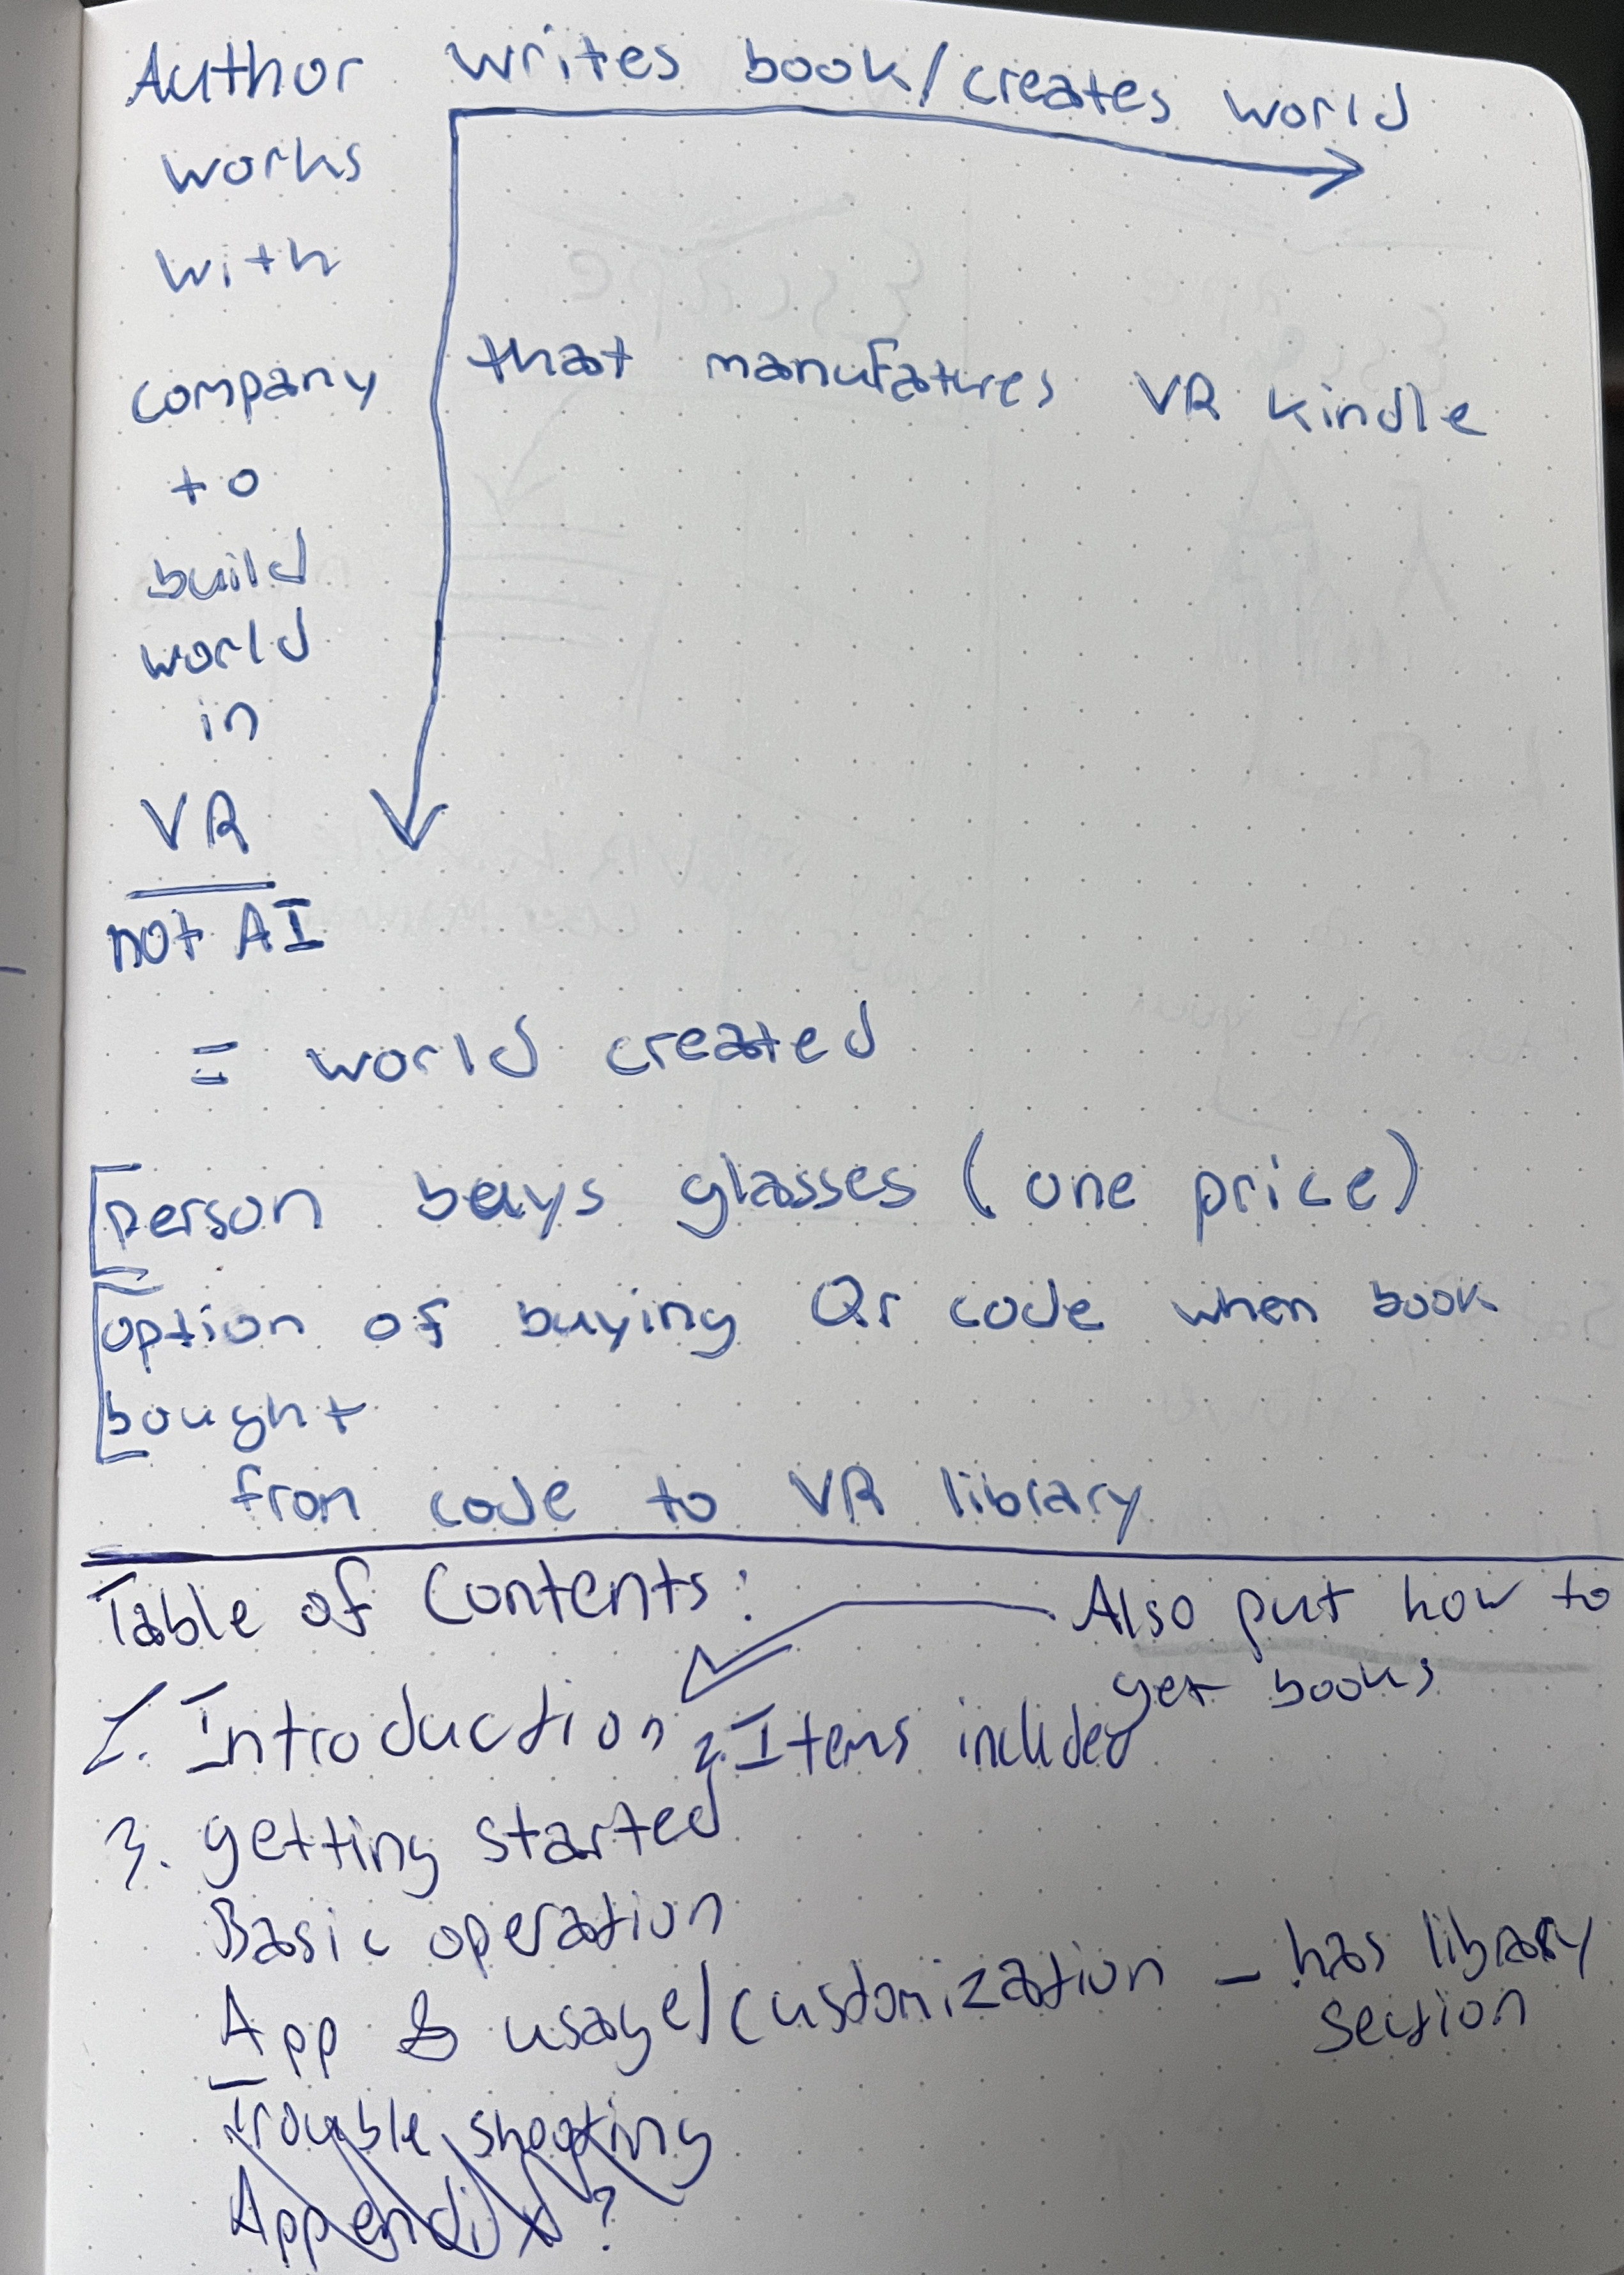 Author writes book/creates world
works
with
company that manufatures VR kindle
to
build
world
in
VR
not AI
= world created
person buys glasses (one price)
option of buying Qr code when book
bought
from code to VR library
Table of Contents:
Also put how to
get books
1. Introduction 2. Items included
3. getting started
Basic operation
App & usage/customization - has library
section
Trouble shooting
Appendix?